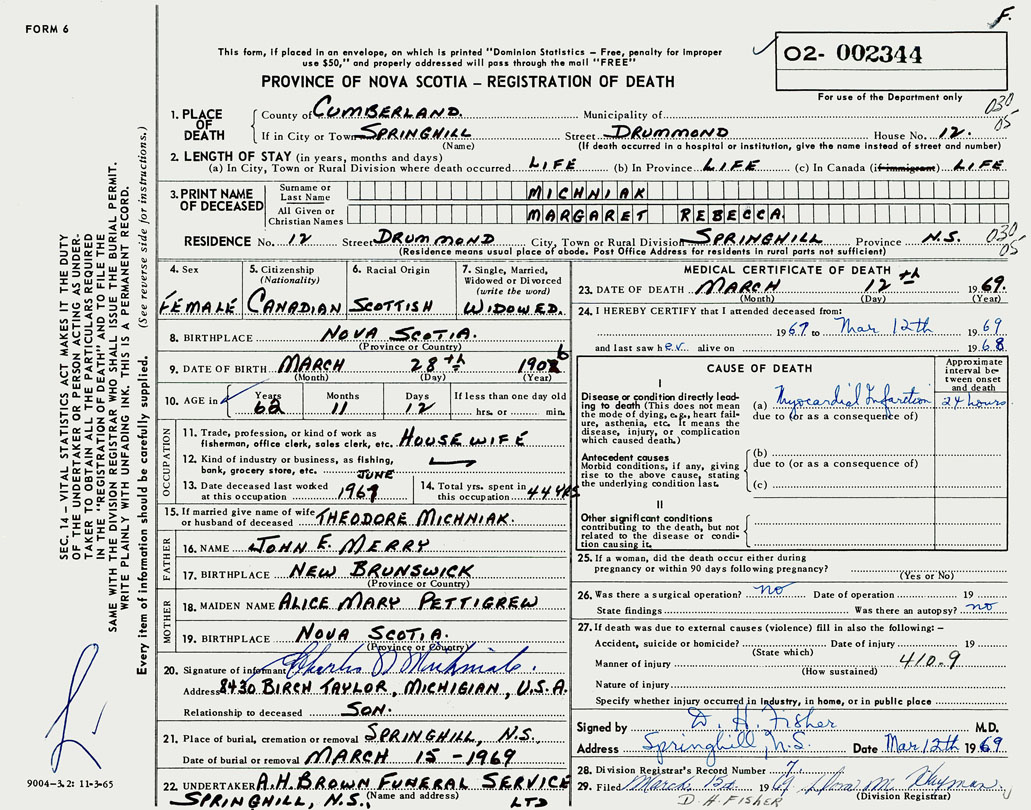 FORM 6
F.
This form, if placed in an envelope, on which is printed "Dominion Statistics – Free, penalty for improper
use $50," and properly addressed will pass through the mail "FREE"
PROVINCE OF NOVA SCOTIA – REGISTRATION OF DEATH
02- 002344
For use of the Department only
030
05
1. PLACE OF DEATH
County of CUMBERLAND. Municipality of
If in City or Town SPRINGHILL Street DRUMMOND House No. 12.
(Name) (If death occurred in a hospital or institution, give the name instead of street and number)
2. LENGTH OF STAY (in years, months and days)
(a) In City, Town or Rural Division where death occurred LIFE (b) In Province LIFE (c) In Canada (if immigrant) LIFE
3. PRINT NAME OF DECEASED
Surname or Last Name MICHNIAK
All Given or Christian Names MARGARET REBECCA
RESIDENCE No. 12 Street DRUMMOND City, Town or Rural Division SPRINGHILL Province N.S. 030 05
(Residence means usual place of abode. Post Office Address for residents in rural parts not sufficient)
4. Sex FEMALE
5. Citizenship (Nationality) CANADIAN
6. Racial Origin SCOTTISH
7. Single, Married, Widowed or Divorced (write the word) WIDOWED.
8. BIRTHPLACE NOVA SCOTIA.
(Province or Country)
9. DATE OF BIRTH MARCH 28th 190 6
(Month) (Day) (Year)
10. AGE in Years 62 Months 11 Days 12 If less than one day old hrs. or min.
OCCUPATION
11. Trade, profession, or kind of work as
fisherman, office clerk, sales clerk, etc. HOUSEWIFE
12. Kind of industry or business, as fishing,
bank, grocery store, etc.
13. Date deceased last worked
at this occupation JUNE 1967
14. Total yrs. spent in
this occupation 44 YRS
15. If married give name of wife
or husband of deceased THEODORE MICHNIAK.
FATHER
16. NAME JOHN E. MERRY
17. BIRTHPLACE NEW BRUNSWICK
(Province or Country)
MOTHER
18. MAIDEN NAME ALICE MARY PETTIGREW
19. BIRTHPLACE NOVA SCOTIA.
(Province or Country)
20. Signature of informant Charles Michniak.
Address 8430 BIRCH TAYLOR, MICHIGIAN, U.S.A.
Relationship to deceased SON.
21. Place of burial, cremation or removal SPRINGHILL, N.S.
Date of burial or removal MARCH 15 - 1969
22. UNDERTAKER A.H. BROWN FUNERAL SERVICE
SPRINGHILL, N.S. (Name and address) LTD
MEDICAL CERTIFICATE OF DEATH
23. DATE OF DEATH MARCH 12th 1969.
(Month) (Day) (Year)
24. I HEREBY CERTIFY that I attended deceased from:
1967 to Mar 12th 1969
and last saw her alive on 1968
CAUSE OF DEATH
Approximate interval between onset and death
I
Disease or condition directly leading to death (This does not mean the mode of dying, e.g., heart failure, asthenia, etc. It means the disease, injury, or complication which caused death.)
(a) Myocardial Infarction 24 hours
due to (or as a consequence of)
Antecedent causes
Morbid conditions, if any, giving rise to the above cause, stating the underlying condition last.
(b)
due to (or as a consequence of)
(c)
II
Other significant conditions
contributing to the death, but not related to the disease or condition causing it.
25. If a woman, did the death occur either during
pregnancy or within 90 days following pregnancy?
(Yes or No)
26. Was there a surgical operation? no Date of operation 19
State findings Was there an autopsy? no
27. If death was due to external causes (violence) fill in also the following: –
Accident, suicide or homicide? Date of injury 19
(State which)
Manner of injury 410.9
(How sustained)
Nature of injury
Specify whether injury occurred in Industry, in home, or in public place
Signed by D. H. Fisher M.D.
Address Springhill, N.S. Date Mar 12th 1969
28. Division Registrar's Record Number 7.
29. Filed March 15 19
D. H. FISHER (Division Registrar)
SEC. 14 – VITAL STATISTICS ACT MAKES IT THE DUTY
OF THE UNDERTAKER OR PERSON ACTING AS UNDER-
TAKER TO OBTAIN ALL THE PARTICULARS REQUIRED
IN THE "REGISTRATION OF DEATH" AND TO FILE THE
SAME WITH THE DIVISION REGISTRAR WHO SHALL ISSUE THE BURIAL PERMIT.
WRITE PLAINLY WITH UNFADING INK. THIS IS A PERMANENT RECORD.
Every item of information should be carefully supplied. (See reverse side for instructions.)
9004-3.2: 11-3-65